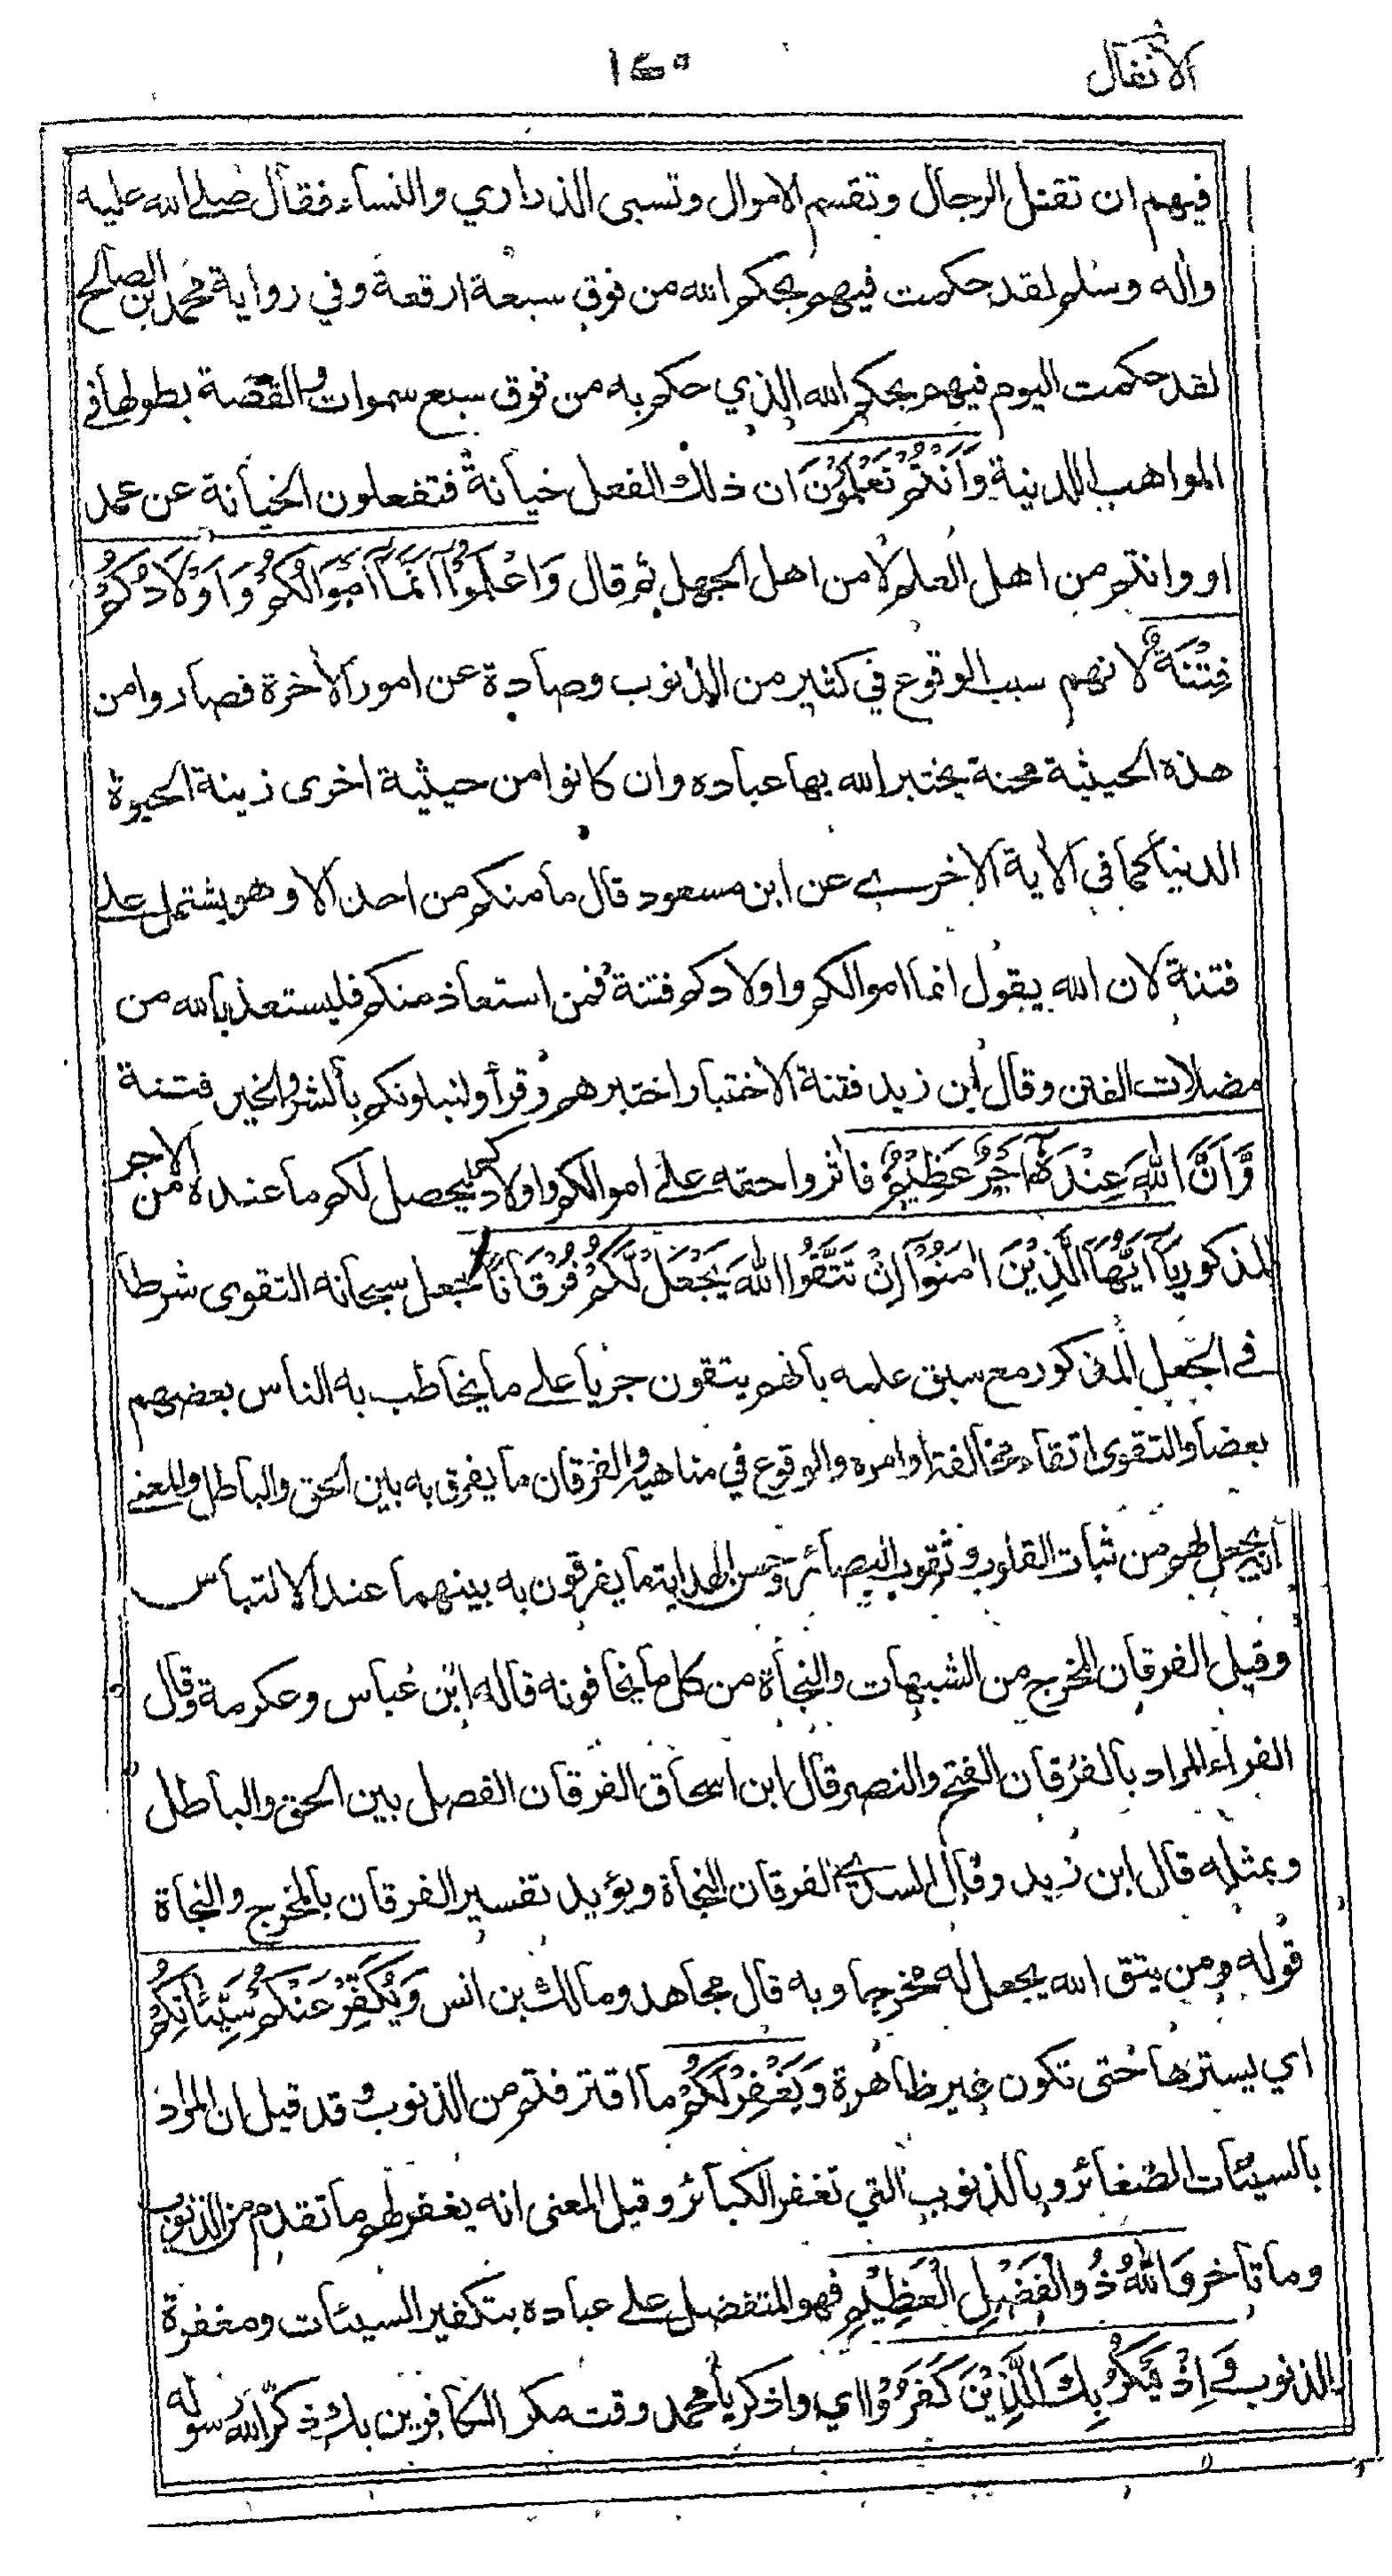 الانفال ١٤٥
فيهم ان تقتل الرجال وتقسم الاموال وتسبى الذراري والنساء فقال صلى الله عليه
واٰله وسلم لقد حكمت فيهم بحكم الله من فوق سبعة ارقعة وفي رواية محمد بن الصالح
لقد حكمت اليوم فيهم بحكم الله الذي حكم به من فوق سبع سموات والقصة بطولها في
المواهب اللدنية وَاَنْتُمْ تَعْلَمُوْنَ ان ذلك الفعل خيانة فتفعلون الخيانة عن عمد
او وانتم من اهل العلم لا من اهل الجهل ثم قال وَاعْلَمُوْٓا اَنَّمَآ اَمْوَالُكُمْ وَاَوْلَادُكُمْ
فِتْنَةٌ لانهم سبب الوقوع في كثير من الذنوب وصادة عن امور الاٰخرة فصاروا من
هذه الحيثية محنة يختبر الله بها عباده وان كانوا من حيثية اخرى زينة الحيوة
الدنيا كما في الاٰية الاخرى عن ابن مسعود قال ما منكم من احد الا وهو يشتمل على
فتنة لان الله يقول انما اموالكم واولادكم فتنة فمن استعاذ منكم فليستعذ بالله من
مضلات الفتن وقال ابن زيد فتنة الاختبار اختبرهم وقرأ ولنبلونكم بالشر والخير فتنة
وَّاَنَّ اللّٰهَ عِنْدَهٗٓ اَجْرٌ عَظِيْمٌ فاٰثروا حقه على اموالكم واولادكم ليحصل لكم ما عنده من الاجر
المذكور يٰٓاَيُّهَا الَّذِيْنَ اٰمَنُوْٓا اِنْ تَتَّقُوا اللّٰهَ يَجْعَلْ لَّكُمْ فُرْقَانًا جعل سبحانه التقوى شرطا
في الجعل المذكور مع سبق علمه بانهم يتقون جريا على ما يخاطب به الناس بعضهم
بعضا والتقوى اتقاء مخالفة اوامره والوقوع في مناهيه والفرقان ما يفرق به بين الحق والباطل والمعنى
انه يجعل لهم من ثبات القلوب وثقوب البصائر وحسن الهداية ما يفرقون به بينهما عند الالتباس
وقيل الفرقان المخرج من الشبهات والنجاة من كل ما يخافونه قاله ابن عباس وعكرمة وقال
الفراء المراد بالفرقان الفتح والنصر قال ابن اسحاق الفرقان الفصل بين الحق والباطل
وبمثله قال ابن زيد وقال السدي الفرقان النجاة ويؤيد تفسير الفرقان بالمخرج والنجاة
قوله ومن يتق الله يجعل له مخرجا وبه قال مجاهد ومالك بن انس وَيُكَفِّرْ عَنْكُمْ سَيِّئَاتِكُمْ
اي يسترها حتى تكون غير ظاهرة وَيَغْفِرْ لَكُمْ ما اقترفتم من الذنوب وقد قيل ان المراد
بالسيئات الصغائر وبالذنوب التي تغفر الكبائر وقيل المعنى انه يغفر لهم ما تقدم من الذنوب
وما تاخر وَاللّٰهُ ذُو الْفَضْلِ الْعَظِيْمِ فهو المتفضل على عباده بتكفير السيئات ومغفرة
الذنوب وَاِذْ يَمْكُرُ بِكَ الَّذِيْنَ كَفَرُوْا اي واذكر يا محمد وقت مكر الكافرين بك ذكّر الله رسوله